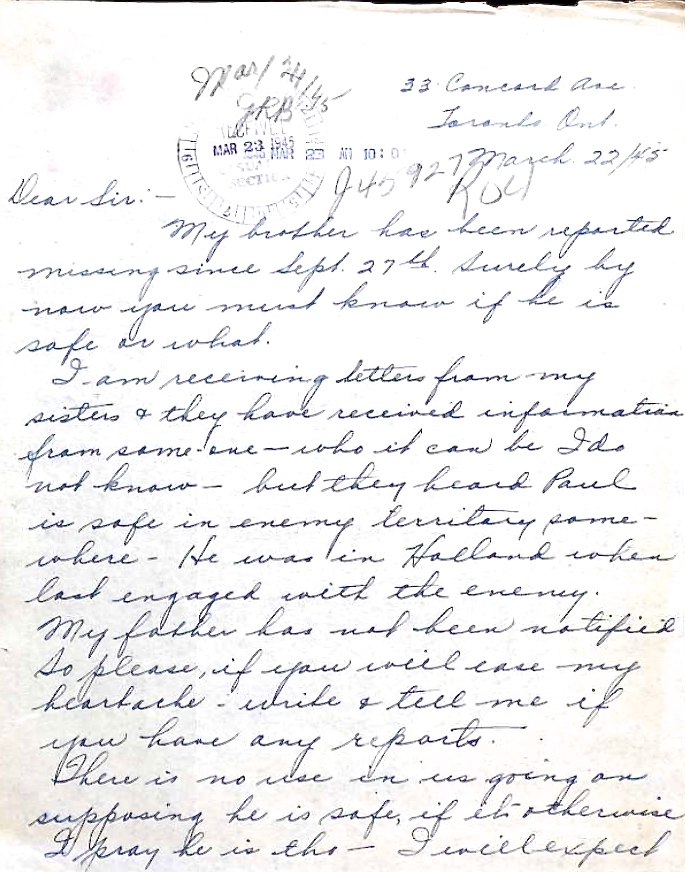 Mar/24/45
GRB
33 Concord Ave.
Toronto Ont.
MAR 23 1945
MAR 23 AM 10:0
SECTION
March. 22/45
J45927 ROY
Dear Sir:—
My brother has been reported
missing since Sept. 27th. Surely by
now you must know if he is
safe or what.
I am receiving letters from my
sisters & they have received information
from some-one — who it can be I do
not know — but they heard Paul
is safe in enemy territory some-
where - He was in Holland when
last engaged with the enemy.
My father has not been notified
so please, if you will ease my
heartache - write & tell me if
you have any reports.
There is no use in us going on
supposing he is safe, if its otherwise
I pray he is tho — I will expect